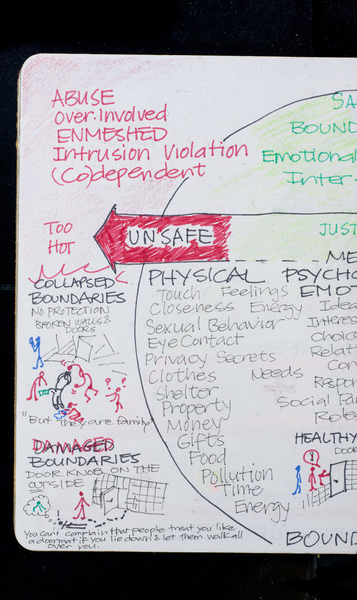 ABUSE
over-Involved
ENMESHED
Intrusion Violation
(Co)dependent
SA
BOUND
Emotional
Inter-
TOO
HOT
UNSAFE
JUST
ME
COLLAPSED
BOUNDARIES
NO PROTECTION
BROKEN WALLS &
DOORS
"But they are family"
DAMAGED
BOUNDARIES
DOOR KNOB ON THE
OUTSIDE
You can't complain that people treat you like
a doormat if you lie down & let them walk all
over you.
PHYSICAL PSYCHO
EMOT
Touch Feelings
Closeness Energy Idea
Sexual Behavior Interes
Eye Contact Choice
Privacy Secrets Relati
Clothes Needs Con
Shelter Respon
Property Social Pa
Money Role
Gifts
Food
Pollution
Time
Energy
HEALTHY
DOOR
BOUND